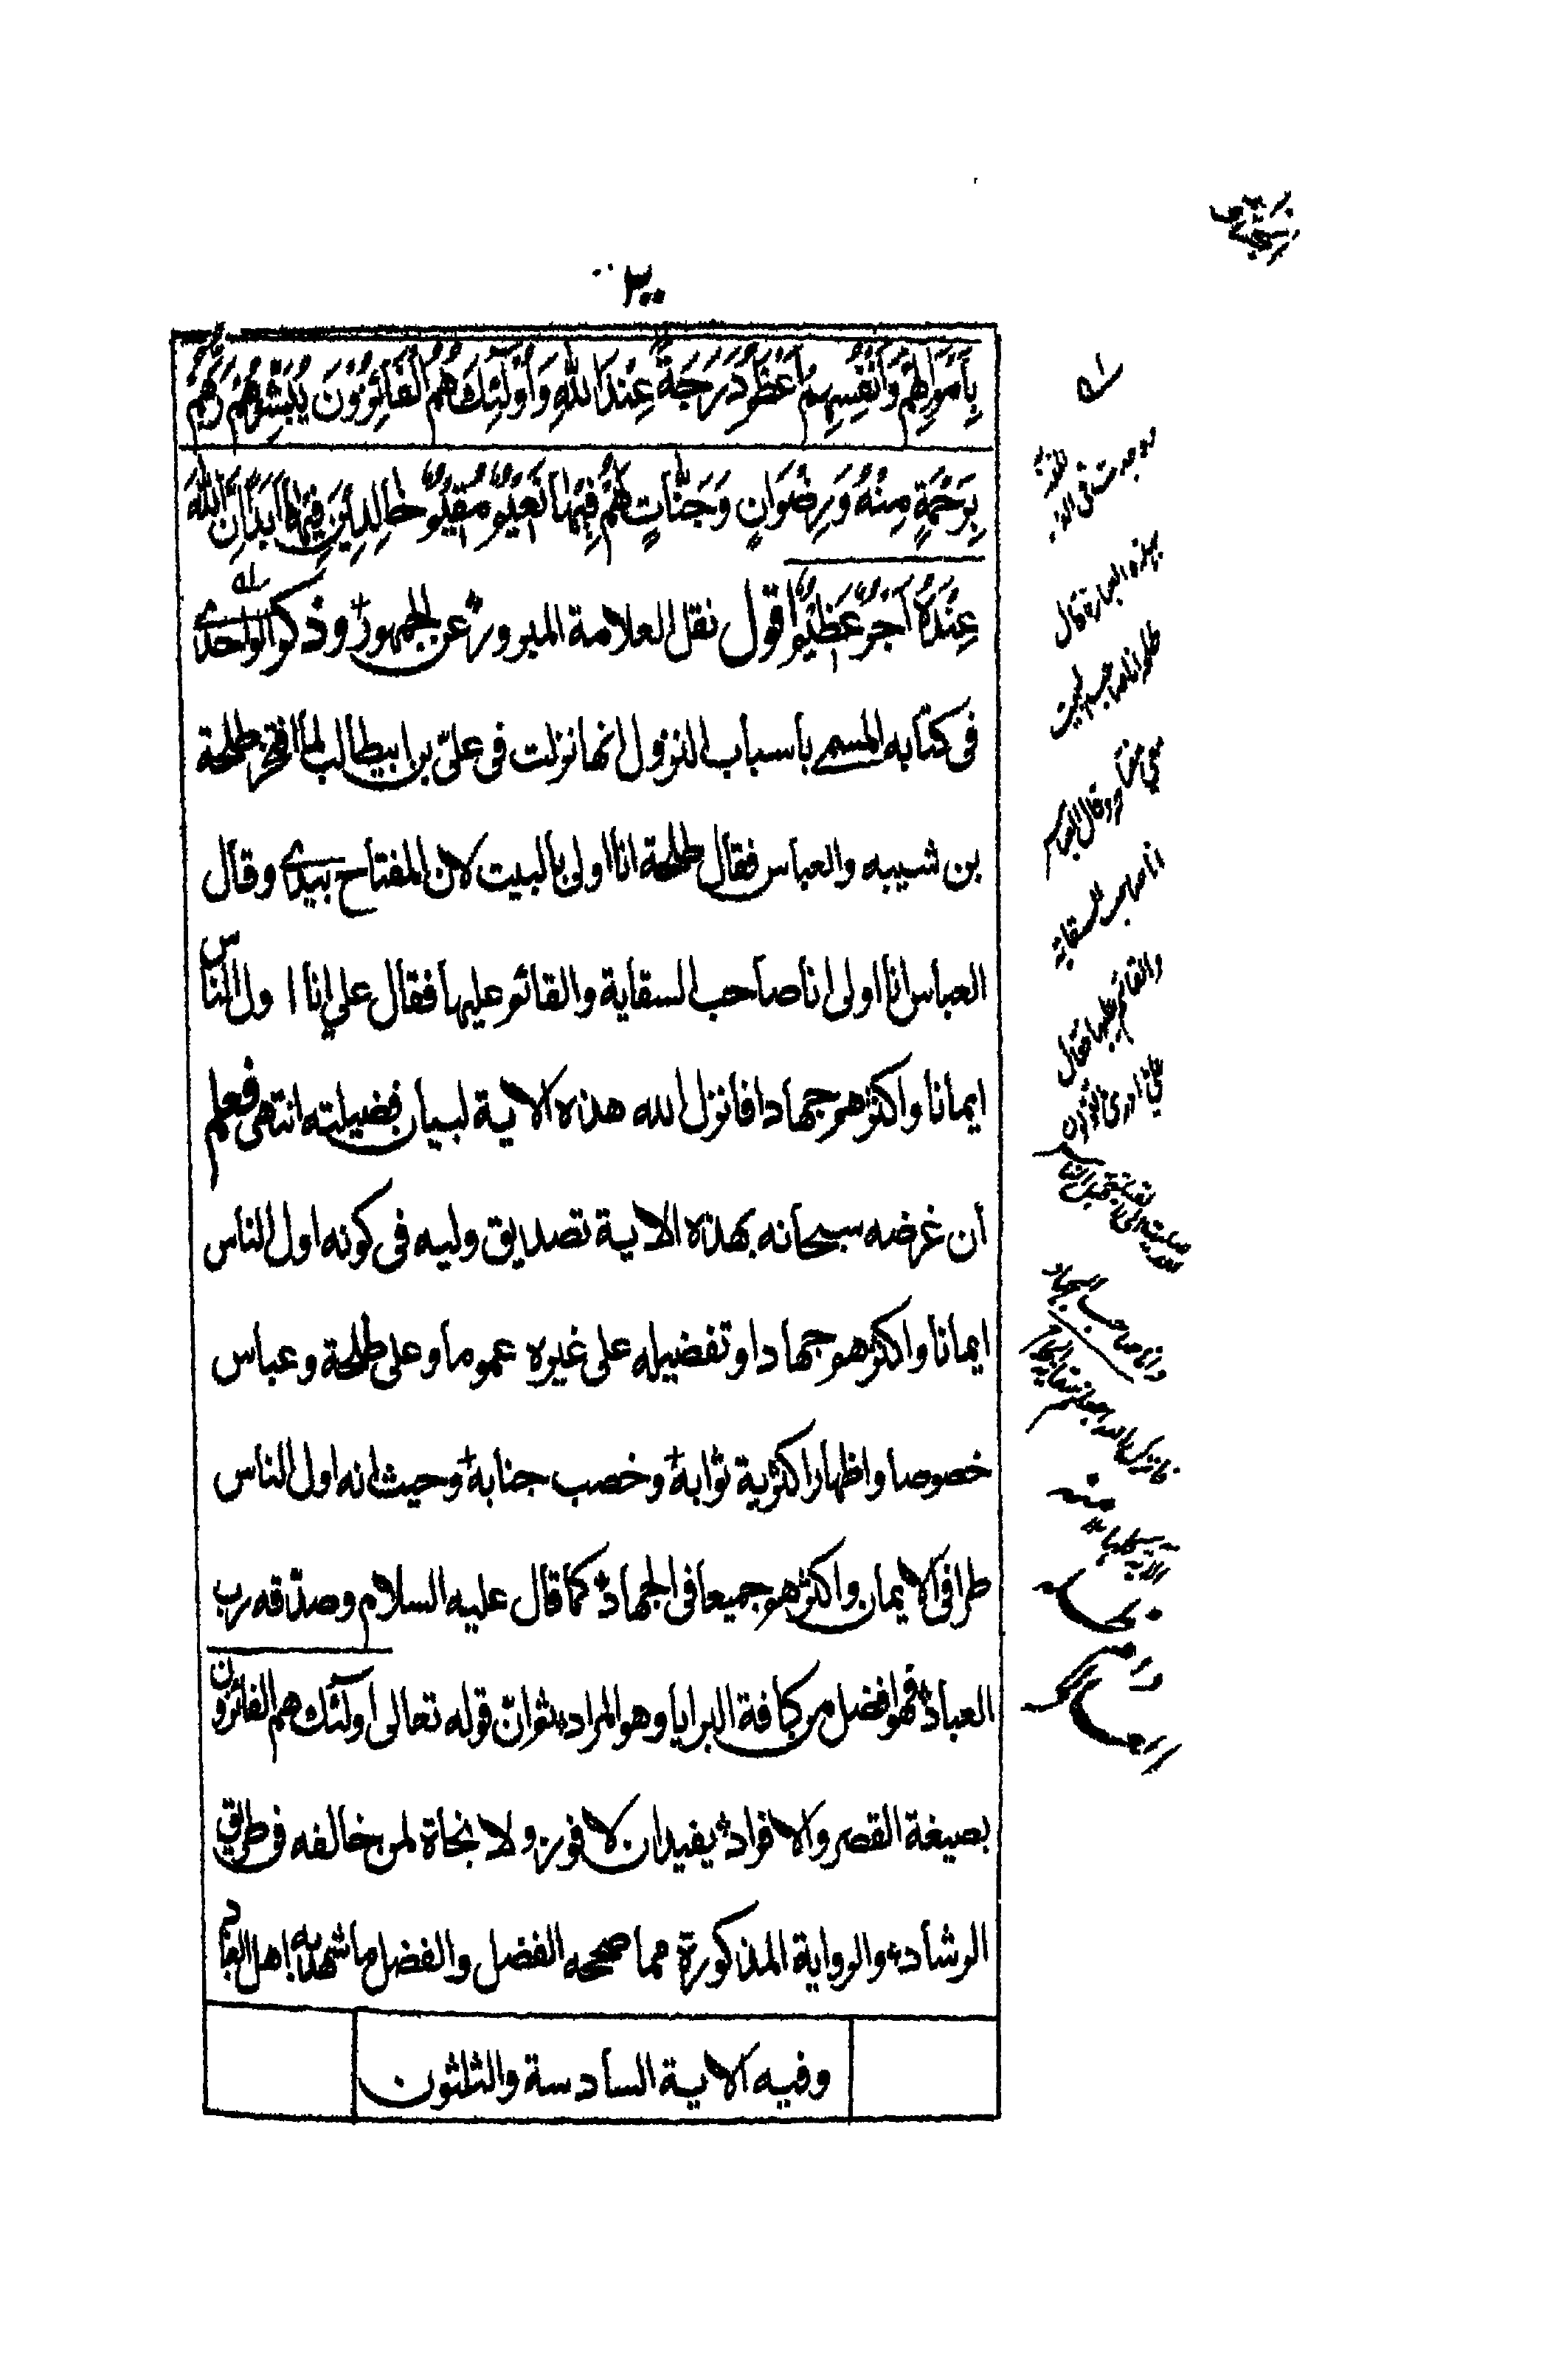 ٣٠
بِأَمْوَالِهِمْ وَأَنْفُسِهِمْ أَعْظَمُ دَرَجَةً عِنْدَ اللّٰهِ وَأُولٰئِكَ هُمُ الْفَائِزُونَ يُبَشِّرُهُمْ رَبُّهُمْ
بِرَحْمَةٍ مِنْهُ وَرِضْوَانٍ وَجَنَّاتٍ لَهُمْ فِيهَا نَعِيمٌ مُقِيمٌ خَالِدِينَ فِيهَا أَبَدًا إِنَّ اللّٰهَ
عِنْدَهُ أَجْرٌ عَظِيمٌ اقول نقل العلامة المبرور عن الجمهور وذكر الواحدى
فى كتابه المسمى باسباب النزول انها نزلت فى علىّ بن ابيطالب لما افتخر طلحة
بن شيبه والعباس فقال طلحة انا اولى بالبيت لان المفتاح بيدى وقال
العباس انا اولى انا صاحب السقاية والقائم عليها فقال علي انا اول الناس
ايمانا واكثرهم جهادا فانزل الله هذه الاية لبيان فضيلته انتهى فعلم
ان غرضه سبحانه بهذه الاية تصديق وليه فى كونه اول الناس
ايمانا واكثرهم جهادا وتفضيله على غيره عموما وعلى طلحة وعباس
خصوصا واظهار اكثرية ثوابه وخصب جنابه وحيث انه اول الناس
طرا فى الايمان واكثرهم جميعا فى الجهاد كما قال عليه السلام وصدّقه رب
العباد فهو افضل من كافة البرايا وهو المراد ثم انّ قوله تعالى اولٓئك هم الفائزون
بصيغة القصر والافراد يفيد ان لا فوز ولا نجاة لمن خالفه فى طريق
الرشاد والرواية المذكورة مما صححه الفضل والفضل ما شهد به اهل العناد
وفيه الاية السادسة والثلثون
بهذه العبارة قال
طلحة انا صاحب البيت
انا صاحب السقاية
والقائم عليها فقال
علي ما ادرى ما تقولان
وانا صاحب الجهاد
فانزل الله اجعلتم سقاية الحاج
الاية
منه